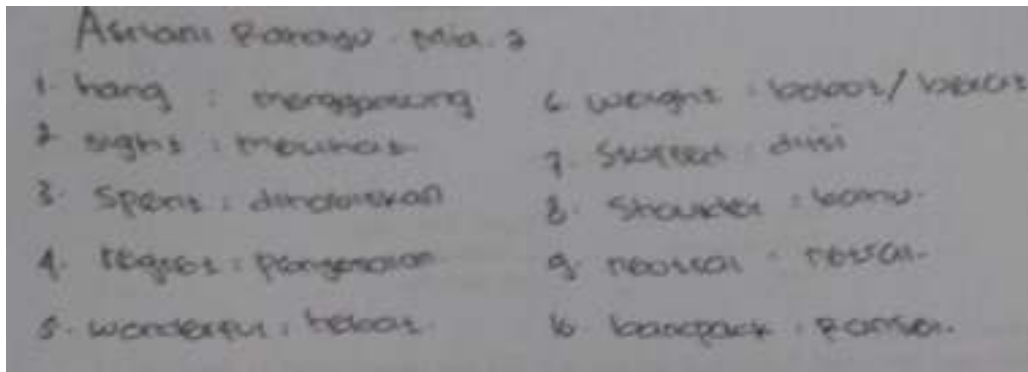 Asriani Rahayu. Mia. 2
1. hang : menggantung
2. sight : melihat
3. Spent : dihabiskan
4. regret : penyesalan
5. wonderful : hebat.
6. weight : bobot / berat
7. Stuffed : diisi
8. Shoulder : bahu.
9. neutral : netral.
10. backpack : ransel.